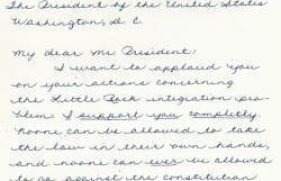 The President of the United States
Washington, D. C.
My dear Mr. President:
I want to applaud you
on your actions concerning
the Little Rock integration pro-
blem. I support you completely.
Noone can be allowed to take
the law in their own hands,
and noone can ever be allowed
to go against the constitution